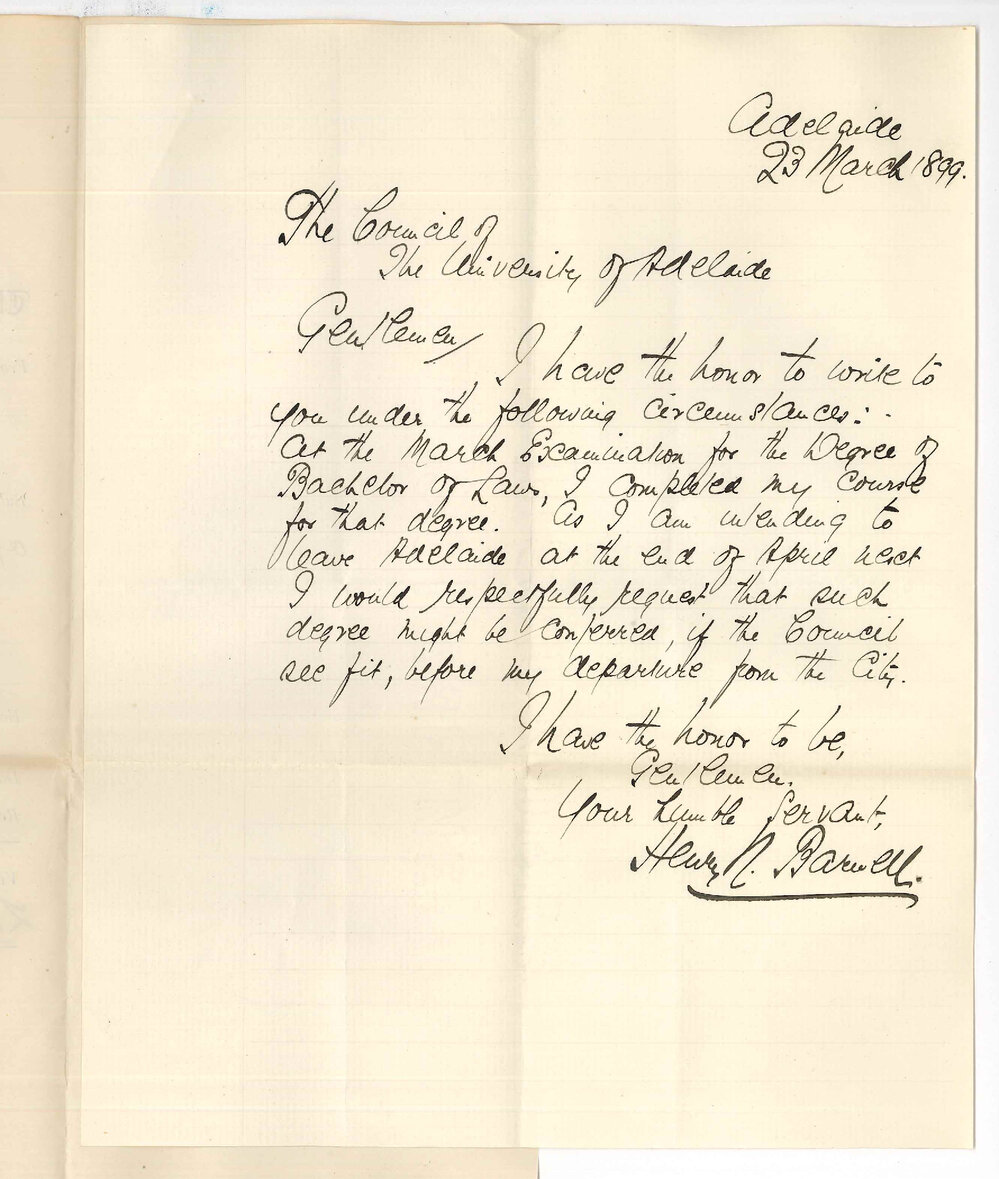 Adelaide
23 March 1899.
The Council of
The University of Adelaide
Gentlemen,
I have the honor to write to
you under the following circumstances:-
At the March Examination for the Degree of
Bachelor of Laws, I completed my course
for that degree. As I am intending to
leave Adelaide at the end of April next
I would respectfully request that such
degree might be conferred, if the Council
see fit, before my departure from the City.
I have the honor to be,
Gentlemen.
Your humble Servant,
Henry N. Barwell.